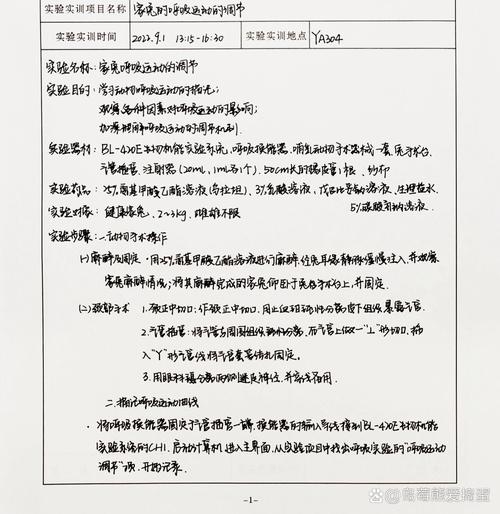 实验实训项目名称 家兔的呼吸运动的调节
实验实训时间 2022.9.1 13:15-16:30 实验实训地点 YA304
实验名称：家兔呼吸运动的调节
实验目的：学习动物呼吸运动的描记；
观察各种因素对呼吸运动的影响；
加深理解呼吸运动的调节机制。
实验器材：BL-420E生物机能实验系统，呼吸换能器，哺乳动物手术器械一套，兔手术台，
气管插管，注射器（20mL，1mL各1个），50cm长的橡皮管1根，纱布
实验药品：25%氨基甲酸乙酯溶液（乌拉坦），3%乳酸溶液，生理盐水，
5%碳酸氢钠溶液.
实验对象：健康家兔，2~3kg，雌雄不限
实验步骤：一.动物手术操作
(一)麻醉及固定：用25%氨基甲酸乙酯溶液进行麻醉，从兔耳缘静脉缓慢注入，并观察
家兔麻醉情况；将其麻醉完成的家兔仰卧于兔手术台上，并固定.
(二)颈部手术 1.颈正中切口：作颈正中切口，用止血钳分离皮下组织，暴露气管.
2.气管插管：将气管与周围组织分离，在气管上做一"⊥"形切口，插
入"Y"形气管插管套管结扎固定。
3.用玻璃分针分离两侧迷走神经，并穿线备用.
二.描记呼吸运动曲线
将呼吸换能器固定于气管插管一端，换能器的输入导线接到BL-420E生物机能
实验系统的CH1.启动计算机进入主界面，从实验项目中找出呼吸实验的"呼吸运动
调节"项，开始记录.
-1-
知乎 @岛莓熊爱蜂蜜